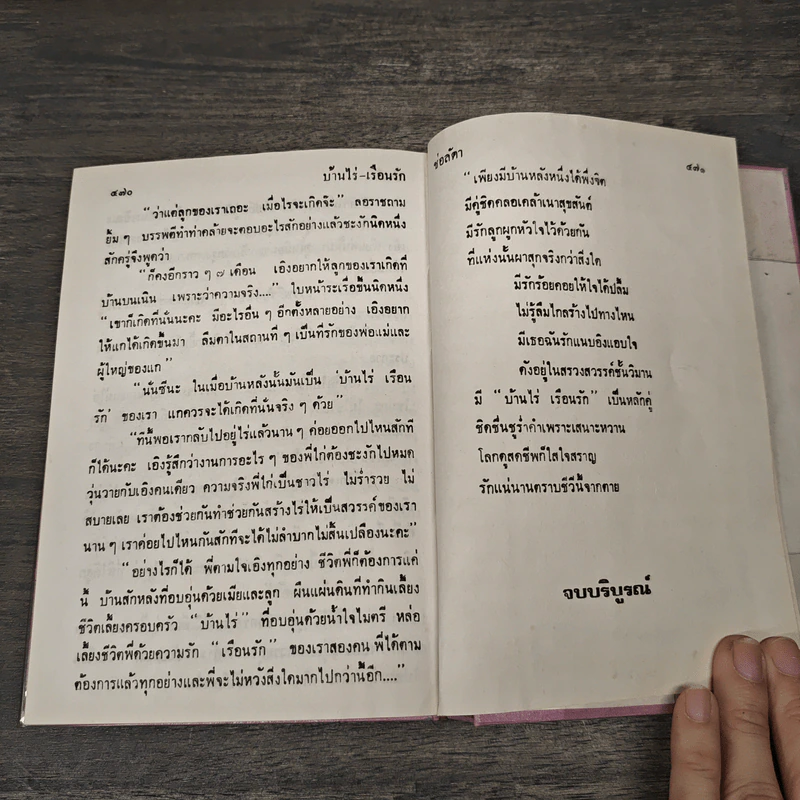 ๔๗๐
บ้านไร่-เรือนรัก
“ว่าแต่ลูกของเราเถอะ เมื่อไรจะเกิดจ๊ะ” ลอราชถาม
ยิ้ม ๆ บรรพตีทำท่าคล้ายจะตอบอะไรสักอย่างแล้วชะงักนิดหนึ่ง
สักครู่จึงพูดว่า
“ก็คงอีกราว ๆ ๗ เดือน เอิงอยากให้ลูกของเราเกิดที่
บ้านบนเนิน เพราะว่าความจริง....” ใบหน้าระเรื่อขึ้นนิดหนึ่ง
“เขาก็เกิดที่นั่นนะคะ มีอะไรอื่น ๆ อีกตั้งหลายอย่าง เอิงอยาก
ให้แกได้เกิดขึ้นมา ลืมตาในสถานที่ ๆ เป็นที่รักของพ่อแม่และ
ผู้ใหญ่ของแก”
“นั่นซีนะ ในเมื่อบ้านหลังนั้นมันเป็น ‘บ้านไร่ เรือน
รัก’ ของเรา แกควรจะได้เกิดที่นั่นจริง ๆ ด้วย”
“ทีนี้พอเรากลับไปอยู่ไร่แล้วนาน ๆ ค่อยออกไปไหนสักที
ก็ได้นะคะ เอิงรู้สึกว่างานการอะไร ๆ ของพี่ไก่ต้องชะงักไปหมด
วุ่นวายกับเอิงคนเดียว ความจริงพี่ไก่เป็นชาวไร่ ไม่ร่ำรวย ไม่
สบายเลย เราต้องช่วยกันทำช่วยกันสร้างไร่ให้เป็นสวรรค์ของเรา
นาน ๆ เราค่อยไปไหนกันสักทีจะได้ไม่ลำบากไม่สิ้นเปลืองนะคะ”
“อย่างไรก็ได้ พี่ตามใจเอิงทุกอย่าง ชีวิตพี่ก็ต้องการแค่
นี้ บ้านสักหลังที่อบอุ่นด้วยเมียและลูก ผืนแผ่นดินที่ทำกินเลี้ยง
ชีวิตเลี้ยงครอบครัว “บ้านไร่” ที่อบอุ่นด้วยน้ำใจไมตรี หล่อ
เลี้ยงชีวิตพี่ด้วยความรัก “เรือนรัก” ของเราสองคน พี่ได้ตาม
ต้องการแล้วทุกอย่างและพี่จะไม่หวังสิ่งใดมากไปกว่านี้อีก....”
ช่อลัดา
๔๗๑
“เพียงมีบ้านหลังหนึ่งได้พึ่งจิต
มีคู่ชิดคลอเคล้าเนาสุขสันต์
มีรักลูกผูกหัวใจไว้ด้วยกัน
ที่แห่งนั้นผาสุกจริงกว่าสิ่งใด
มีรักร้อยคอยให้ใจได้ปลื้ม
ไม่รู้ลืมไกลร้างไปทางไหน
มีเธอฉันรักแนบอิงแอบใจ
ดังอยู่ในสรวงสวรรค์ชั้นวิมาน
มี “บ้านไร่ เรือนรัก” เป็นหลักคู่
ชิดชื่นชูร่ำคำเพราะเสนาะหวาน
โลกดุสดชีพก็ใสใจสราญ
รักแน่นานตราบชีวีนี้จากตาย
จบบริบูรณ์